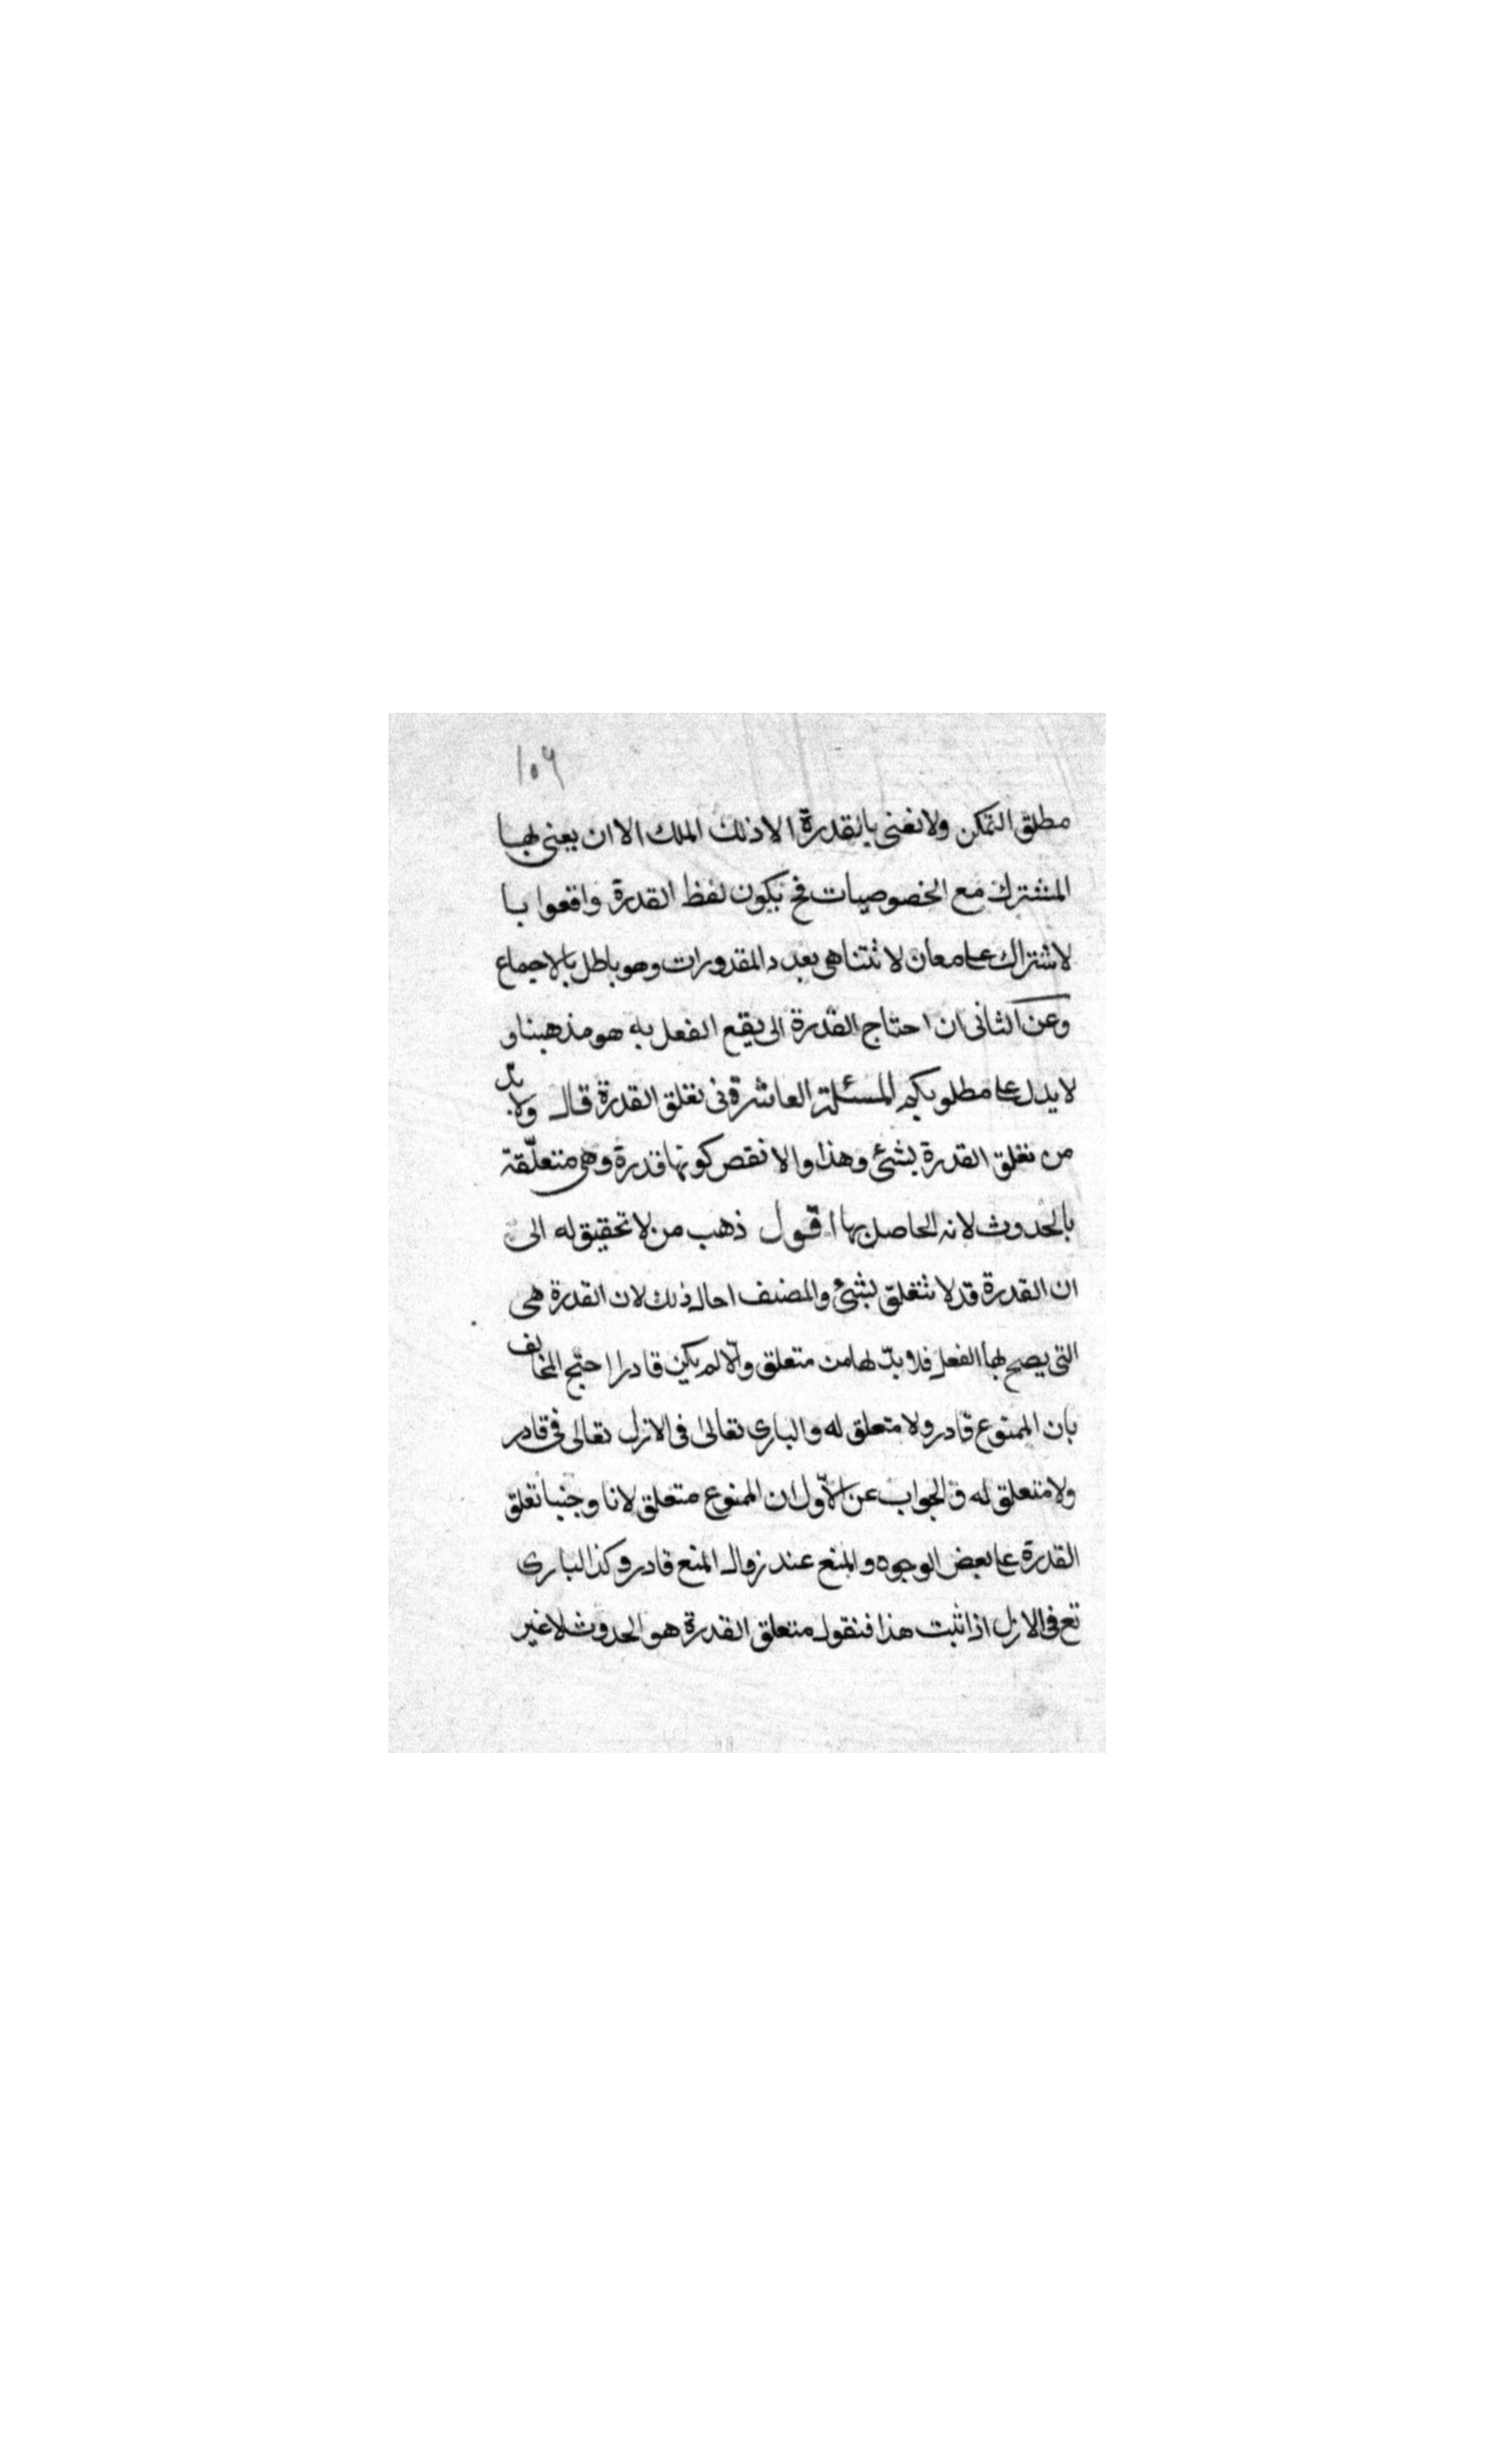 ١٠٩
مطلق التمكن ولا نعنى بالقدرة الا ذلك الملك الا ان يعنى لها
المشترك مع الخصوصيات فح يكون لفظ القدرة واقعوا با
لاشتراك على معان لا تتناهى بعدد المقدورات وهو باطل بالاجماع
وعن الثانى ان احتاج القدرة الى يقع الفعل به هو مذهبنا و
لا يدل على مطلوبكم المسئلة العاشرة فى تعلق القدرة قال ولا بد
من تعلق القدرة بشئ وهذا والا نقص كونها قدرة وهى متعلّقة
بالحدوث لانه الحاصل بها اقول ذهب من لا تحقيق له الى
ان القدرة قد لا تتعلّق بشئ والمصنف احال ذلك لان القدرة هى
التى يصح لها الفعل فلا بدّ لها من متعلق والّا لم يكن قادرا احتج المخالف
بان الممنوع قادر ولا متعلق له والبارى تعالى فى الازل تعالى فى قادر
ولا متعلق له والجواب عن الاّول ان الممنوع متعلق لانا وجنبا تعلق
القدرة على بعض الوجوه والمنع عند زوال المنع قادر وكذا البارى
تع فى الازل اذا ثبت هذا فنقول متعلق القدرة هو الحدوث لا غير